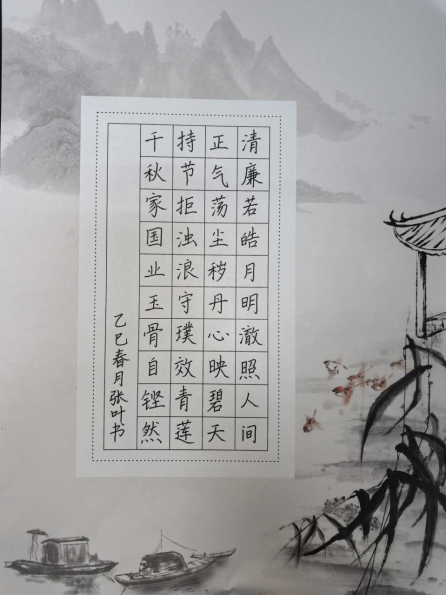 清廉若皓月明澈照人间
正气荡尘秽丹心映碧天
持节拒浊浪守璞效青莲
千秋家国业玉骨自铿然
乙巳春月张叶书